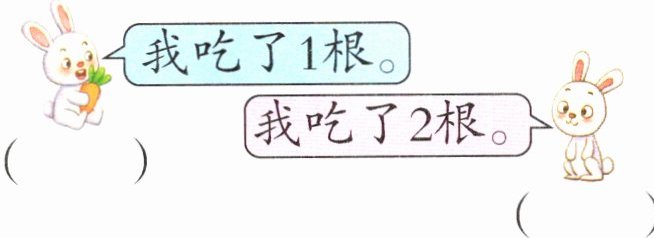 我吃了1根。
我吃了2根。
(    )
(    )